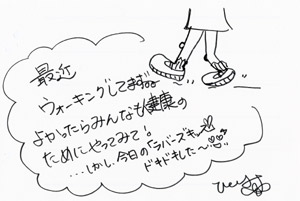 最近
ウォーキングしてまずぅ
よかったらみんなも健康の
ためにやってみて!
…しかし今日の「ラバーズキッ
ドキドキした〜